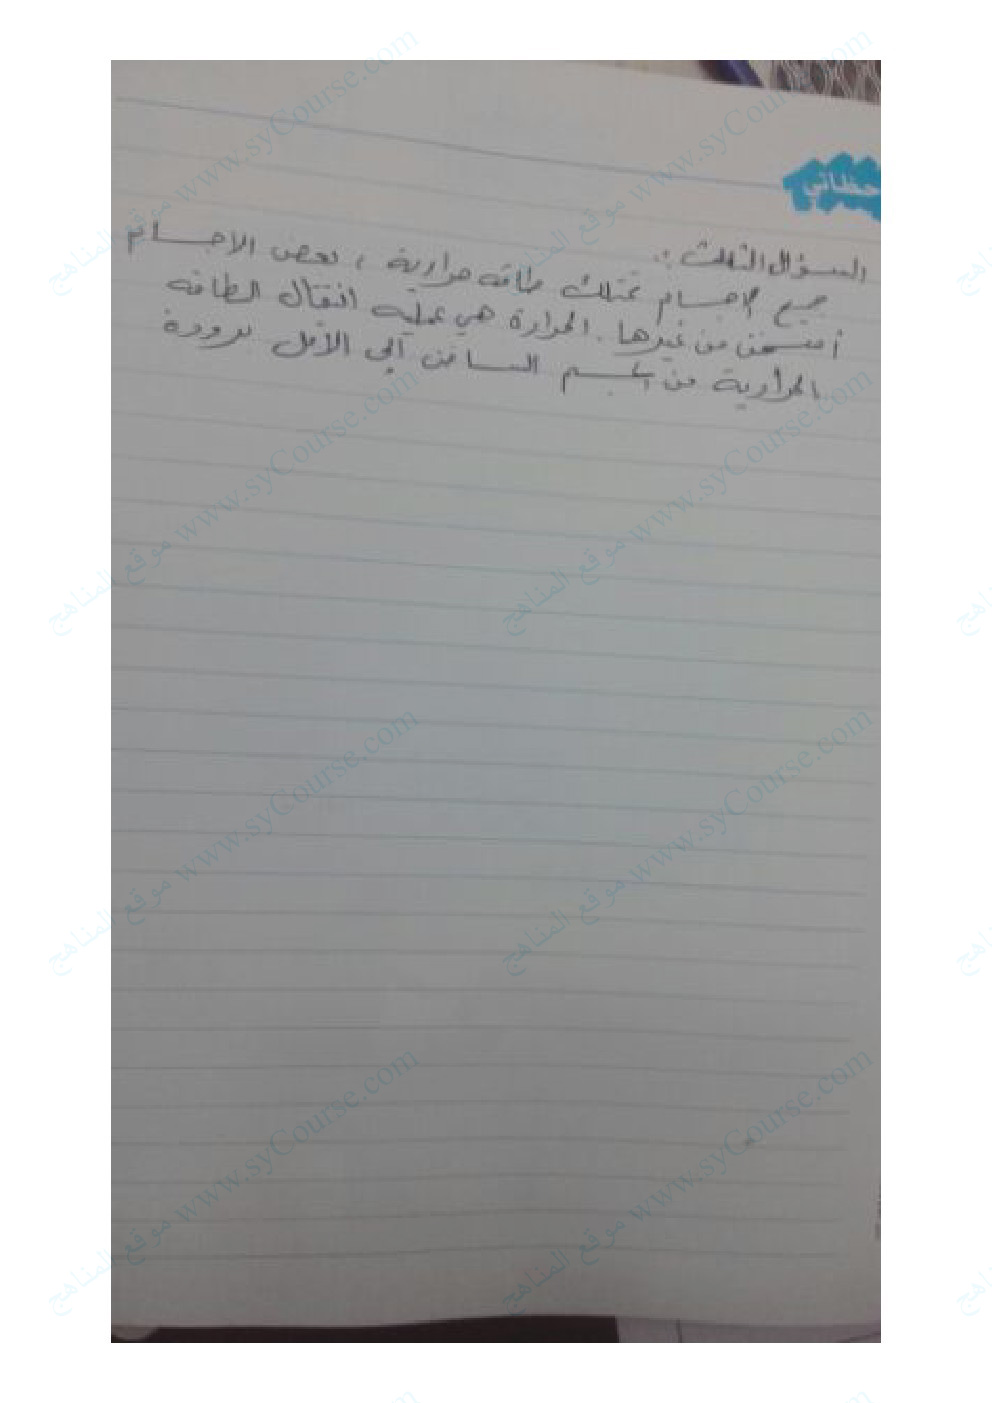 حظاتي
السؤال الثالث :
جميع الاجسام تمتلك طاقه حرارية ، بعض الاجسام
أسخن من غيرها . الحرارة هي عملية انتقال الطاقه
الحرارية من الجسم الساخن الى الأقل برودة
موقع المناهج www.syCourse.com